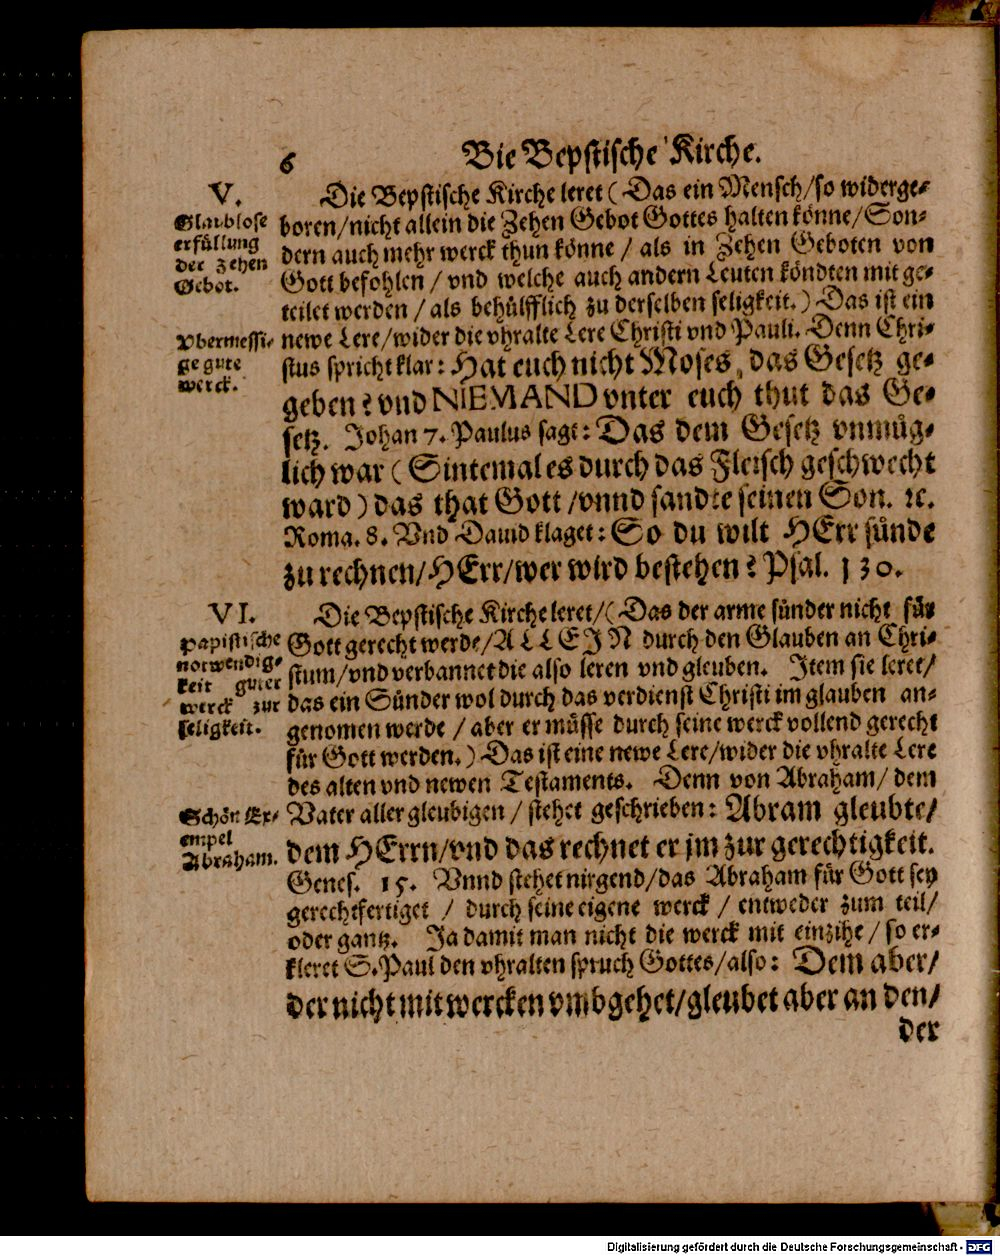 6 Die Bepstische Kirche.
V.
Glaublose
erfüllung
der zehen
Gebot.
Die Bepstische Kirche leret (Das ein Mensch/so widerge-
boren/nicht allein die Zehen Gebot Gottes halten könne/Son-
dern auch mehr werck thun könne / als in Zehen Geboten von
Gott befohlen / vnd welche auch andern Leuten köndten mit ge-
teilet werden / als behülfflich zu derselben seligkeit.) Das ist ein
Vbermessi-
ge gute
werck.
newe Lere/wider die vhralte Lere Christi vnd Pauli. Denn Chri-
stus spricht klar: Hat euch nicht Moses, das Gesetz ge-
geben? vnd NIEMAND vnter euch thut das Ge-
setz. Johan 7. Paulus sagt: Das dem Gesetz vnmüg-
lich war (Sintemal es durch das Fleisch geschwecht
ward) das that Gott /vnnd sandte seinen Son. ꝛc.
Roma. 8. Vnd Dauid klaget: So du wilt HErr sünde
zu rechnen/HErr/wer wird bestehen? Psal. 130.
VI.
Papistische
notwendig-
keit guter
werck zur
seligkeit.
Die Bepstische Kirche leret/(Das der arme sünder nicht für
Gott gerecht werde/ALLEIN durch den Glauben an Chri-
stum/vnd verbannet die also leren vnd gleuben. Item sie leret/
das ein Sünder wol durch das verdienst Christi im glauben an-
genomen werde / aber er müsse durch seine werck vollend gerecht
für Gott werden.) Das ist eine newe Lere/wider die vhralte Lere
des alten vnd newen Testaments. Denn von Abraham/ dem
Schön Ex-
empel
Abraham.
Vater aller gleubigen / stehet geschrieben: Abram gleubte/
dem HErrn/vnd das rechnet er jm zur gerechtigkeit.
Genes. 15. Vnnd stehet nirgend/das Abraham für Gott sey
gerechtfertiget / durch seine eigene werck / entweder zum teil/
oder gantz. Ja damit man nicht die werck mit einzihe / so er-
kleret S. Paul den vhralten spruch Gottes/also: Dem aber/
der nicht mit wercken vmbgehet/gleubet aber an den/
der
Digitalisierung gefördert durch die Deutsche Forschungsgemeinschaft - DFG